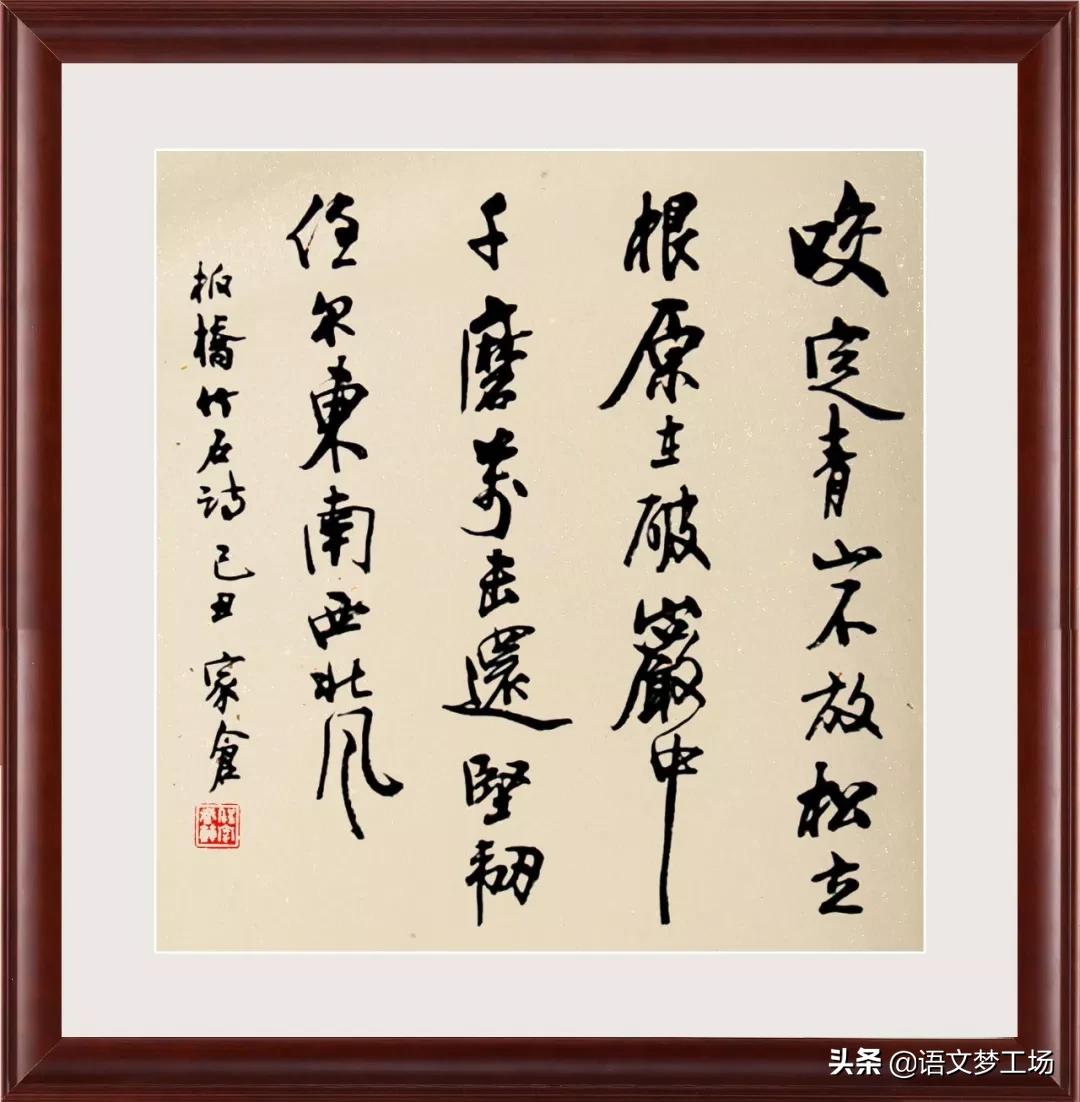 咬定青山不放松立
根原在破巖中
千磨萬击還堅韌
任尔東南西北风
板橋竹石詩 己丑 家倉
头条 @语文梦工场